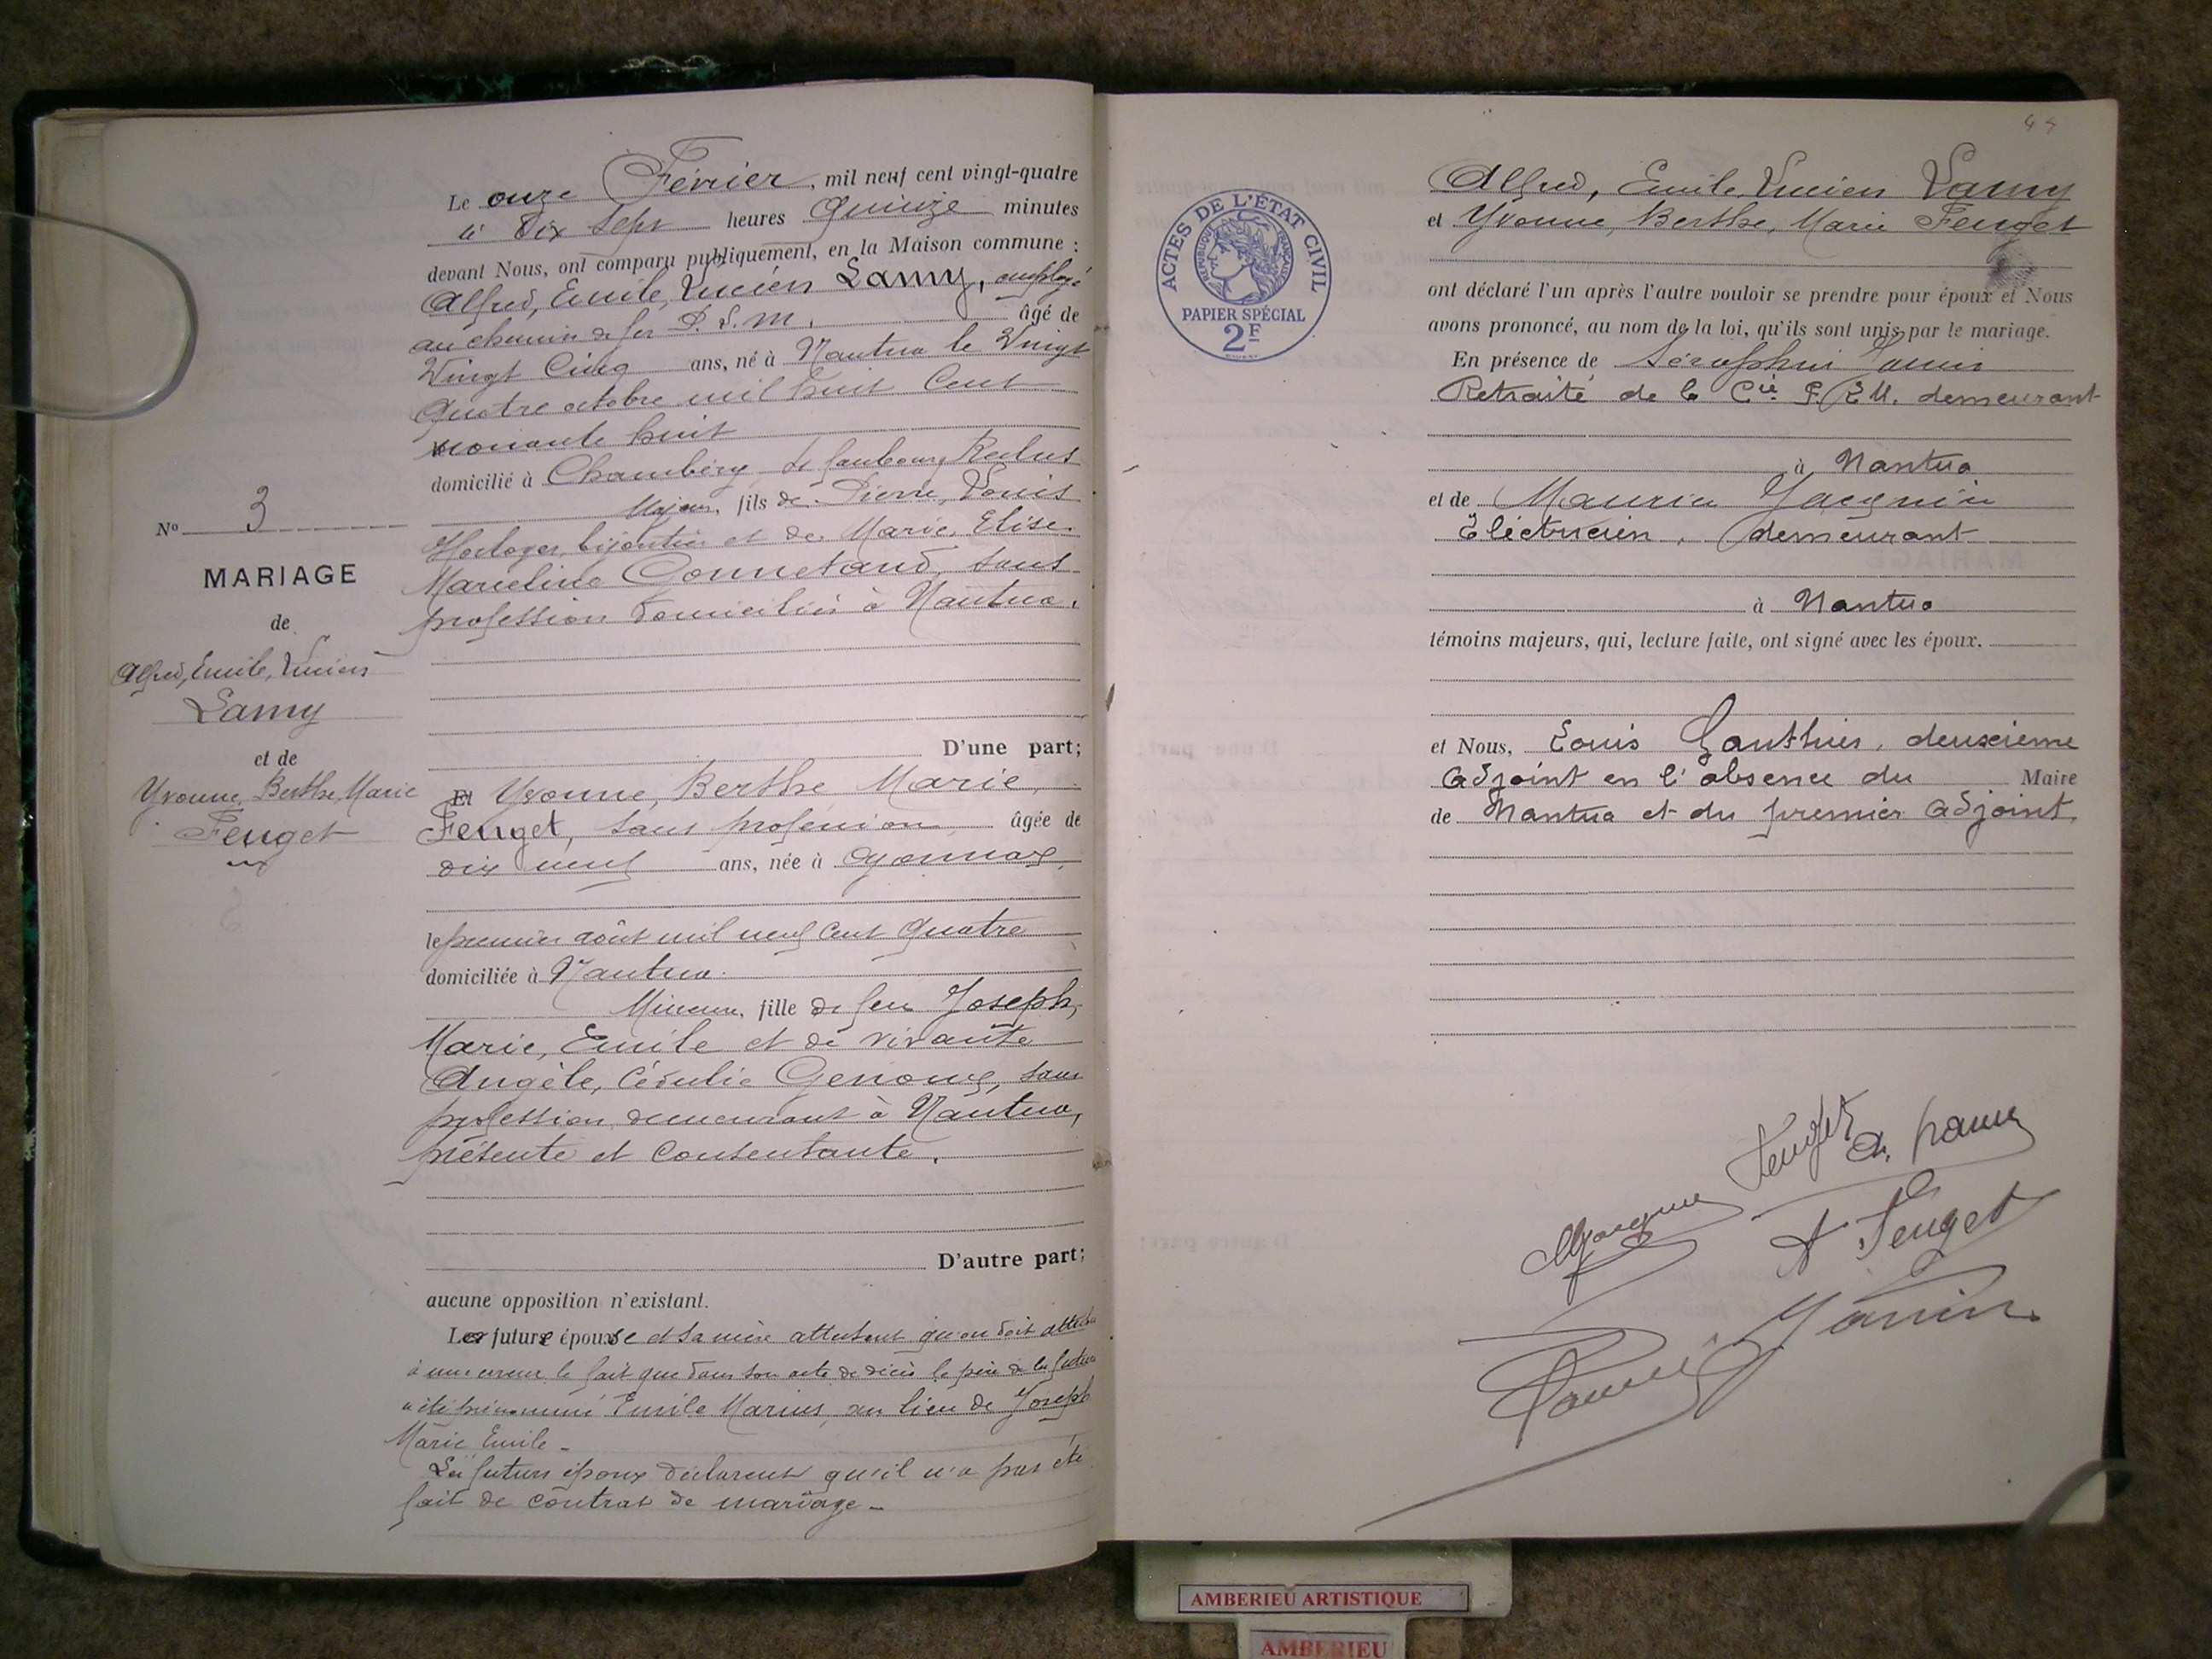 Le onze Février, mil neuf cent vingt-quatre
à dix sept heures quinze minutes
devant Nous, ont comparu publiquement, en la Maison commune :
Alfred, Emile, Lucien Lamy, employé
au chemin de fer P.L.M. âgé de
Vingt Cinq ans, né à Nantua le Vingt
quatre octobre mil huit Cent
domicilié à Chambéry faubourg Reclus
Majeur, fils de Pierre, Louis
Horloger, bijoutier et de Marie, Elise
Marceline Connetand, sans
profession domiciliés à Nantua.
N° 3
MARIAGE
de
Alfred, Emile, Lucien
Lamy
et de
Yvonne, Berthe, Marie
Feuget
D'une part;
Et Yvonne, Berthe Marie,
Feuget, sans profession âgée de
dix neuf ans, née à Oyonnax,
le premier août mil neuf cent quatre
domiciliée à Nantua.
Mineure, fille de feu Joseph,
Marie, Emile et de vivante
Angèle, Cédulie Genoux, sans
profession demeurant à Nantua,
présente et consentante.
D'autre part;
aucune opposition n'existant.
La future épouse et sa mère attestent qu'on doit
à une erreur le fait que dans son acte de décès le père de la future
a été prénommé Emile Marius, au lieu de Joseph
Marie Emile -
Les futurs époux déclarent qu'il n'a pas été
fait de contrat de mariage -
44
ACTES DE L'ÉTAT CIVIL
RÉPUBLIQUE FRANÇAISE
PAPIER SPÉCIAL
2F
Alfred, Emile, Lucien Lamy
et Yvonne, Berthe, Marie Feuget
ont déclaré l'un après l'autre vouloir se prendre pour époux et Nous
avons prononcé, au nom de la loi, qu'ils sont unis par le mariage.
En présence de Séraphin
Retraité de la Cie P.L.M. demeurant
à Nantua
et de Maurice Jacquin
Electricien, demeurant
à Nantua
témoins majeurs, qui, lecture faite, ont signé avec les époux.
et Nous, Louis Gauthier, deuxième
Adjoint en l'absence du Maire
de Nantua et du premier Adjoint.
Feuget
A. Lamy
A Feuget
Janin
AMBERIEU ARTISTIQUE
AMBERIEU